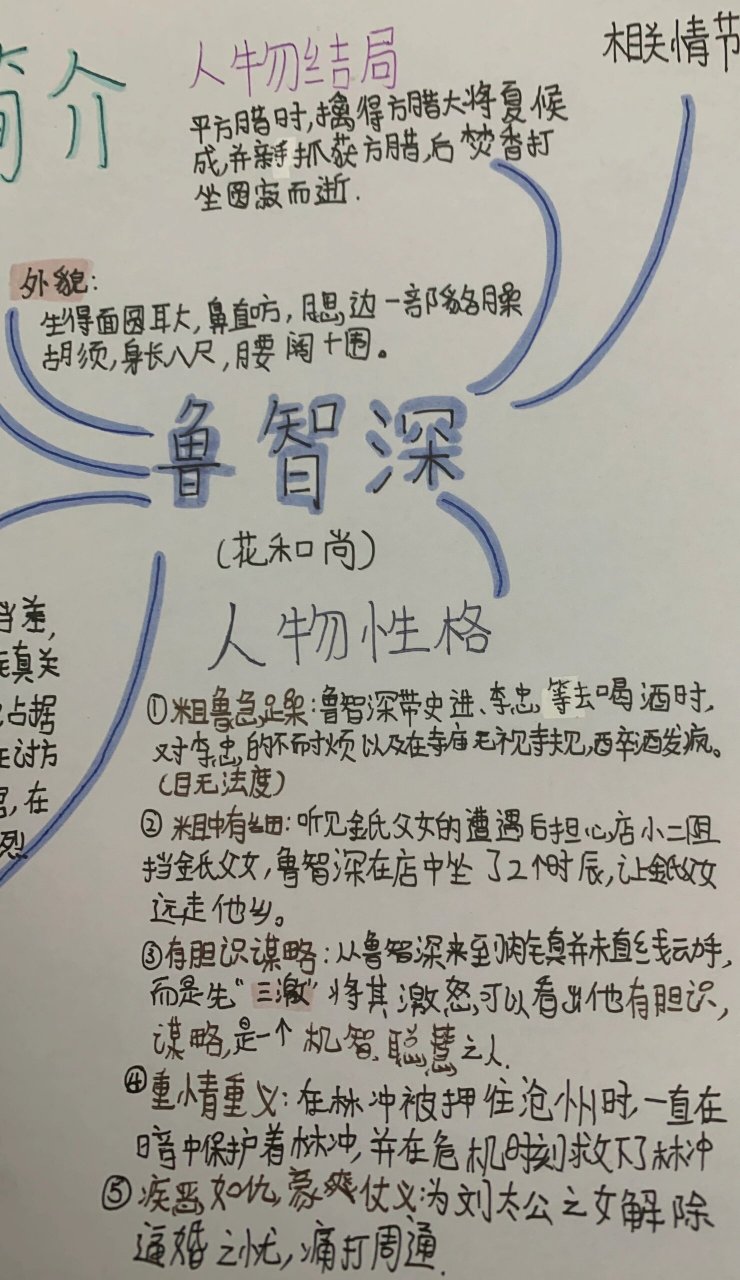 简介
人物结局
相关情节
平方腊时,擒得方腊大将夏候
成,并亲手抓获方腊,后焚香打
坐圆寂而逝.
外貌:
生得面圆耳大,鼻直口方,腮边一部貉臊
胡须,身长八尺,腰阔十围。
鲁智深
(花和尚)
人物性格
当差,
真关
占据
讨方
,在
烈
①粗鲁急躁:鲁智深带史进、李忠等去喝酒时,
对李忠的不耐烦以及在寺庙无视寺规,酗酒发疯。
(目无法度)
②粗中有细:听见金氏父女的遭遇后担心店小二阻
挡金氏父女,鲁智深在店中坐了2个时辰,让金氏父女
远走他乡。
③有胆识谋略:从鲁智深来到肉铺并未直线动手,
而是先“三激”将其激怒,可以看出他有胆识,
谋略,是一个机智、聪慧之人.
④重情重义:在林冲被押往沧州时,一直在
暗中保护着林冲,并在危机时刻救下了林冲
⑤疾恶如仇,豪爽仗义:为刘太公之女解除
逼婚之忧,痛打周通.